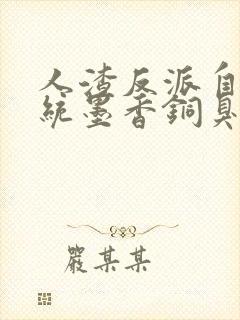 人渣反派自
統墨香銅臭
嚴某某